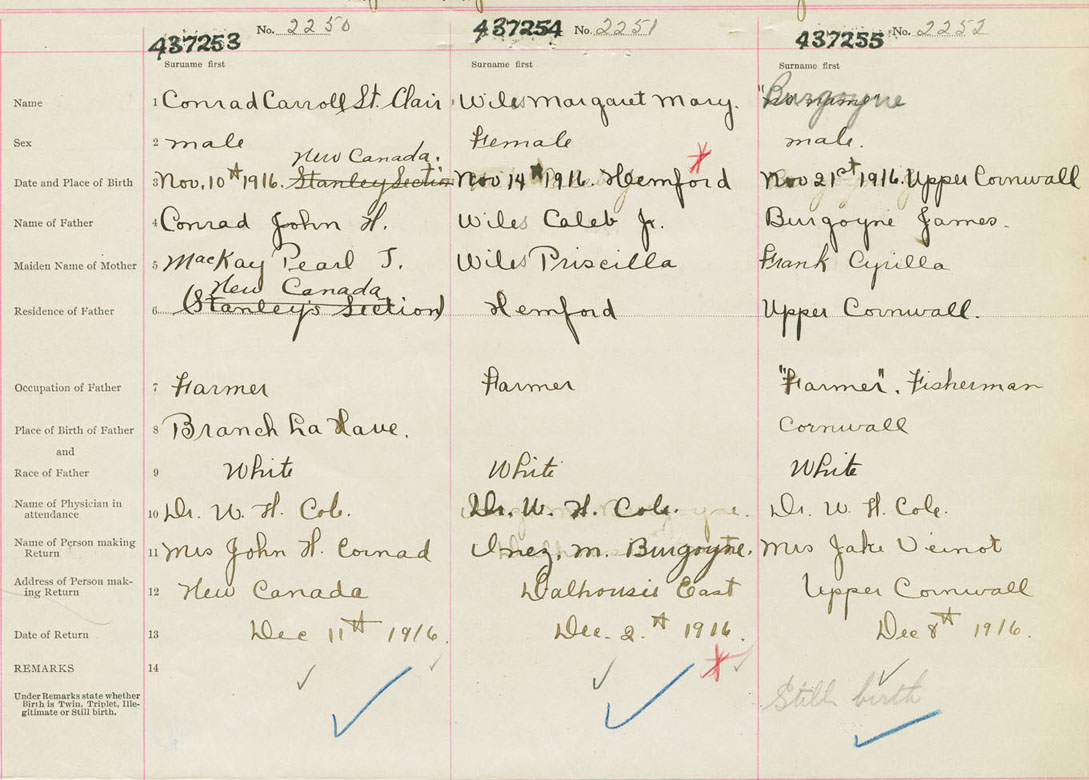 No. 2250
437253
Surname first
437254
No. 2251
Surname first
437255
No. 2252
Surname first
Name
1 Conrad Carroll St. Clair
Wiles Margaret Mary.
Burgoyne
Sex
2 male
Female
male.
Date and Place of Birth
New Canada.
3 Nov. 10th 1916. Stanley Section
Nov 14th 1916. Hemford
Nov 21st 1916. Upper Cornwall
Name of Father
4 Conrad John H.
Wiles Caleb Jr.
Burgoyne James.
Maiden Name of Mother
5 MacKay Pearl J.
Wiles Priscilla
Frank Cyrilla
Residence of Father
New Canada
6 (Stanley's Section)
Hemford
Upper Cornwall.
Occupation of Father
7 Farmer
Farmer
"Farmer". Fisherman
Place of Birth of Father
8 Branch LaHave.
Cornwall
and
Race of Father
9 White
White
White
Name of Physician in
attendance
10 Dr. W. H. Cole.
Dr. W. H. Cole.
Dr. W. H. Cole.
Name of Person making
Return
11 Mrs John H. Cornad
Inez. M. Burgoyne.
Mrs Jake Veinot
Address of Person mak-
ing Return
12 New Canada
Dalhousie East
Upper Cornwall
Date of Return
13 Dec 11th 1916.
Dec. 2th 1916.
Dec 8th 1916.
REMARKS 14
Under Remarks state whether
Birth is Twin, Triplet, Ille-
gitimate or Still birth.
Still birth